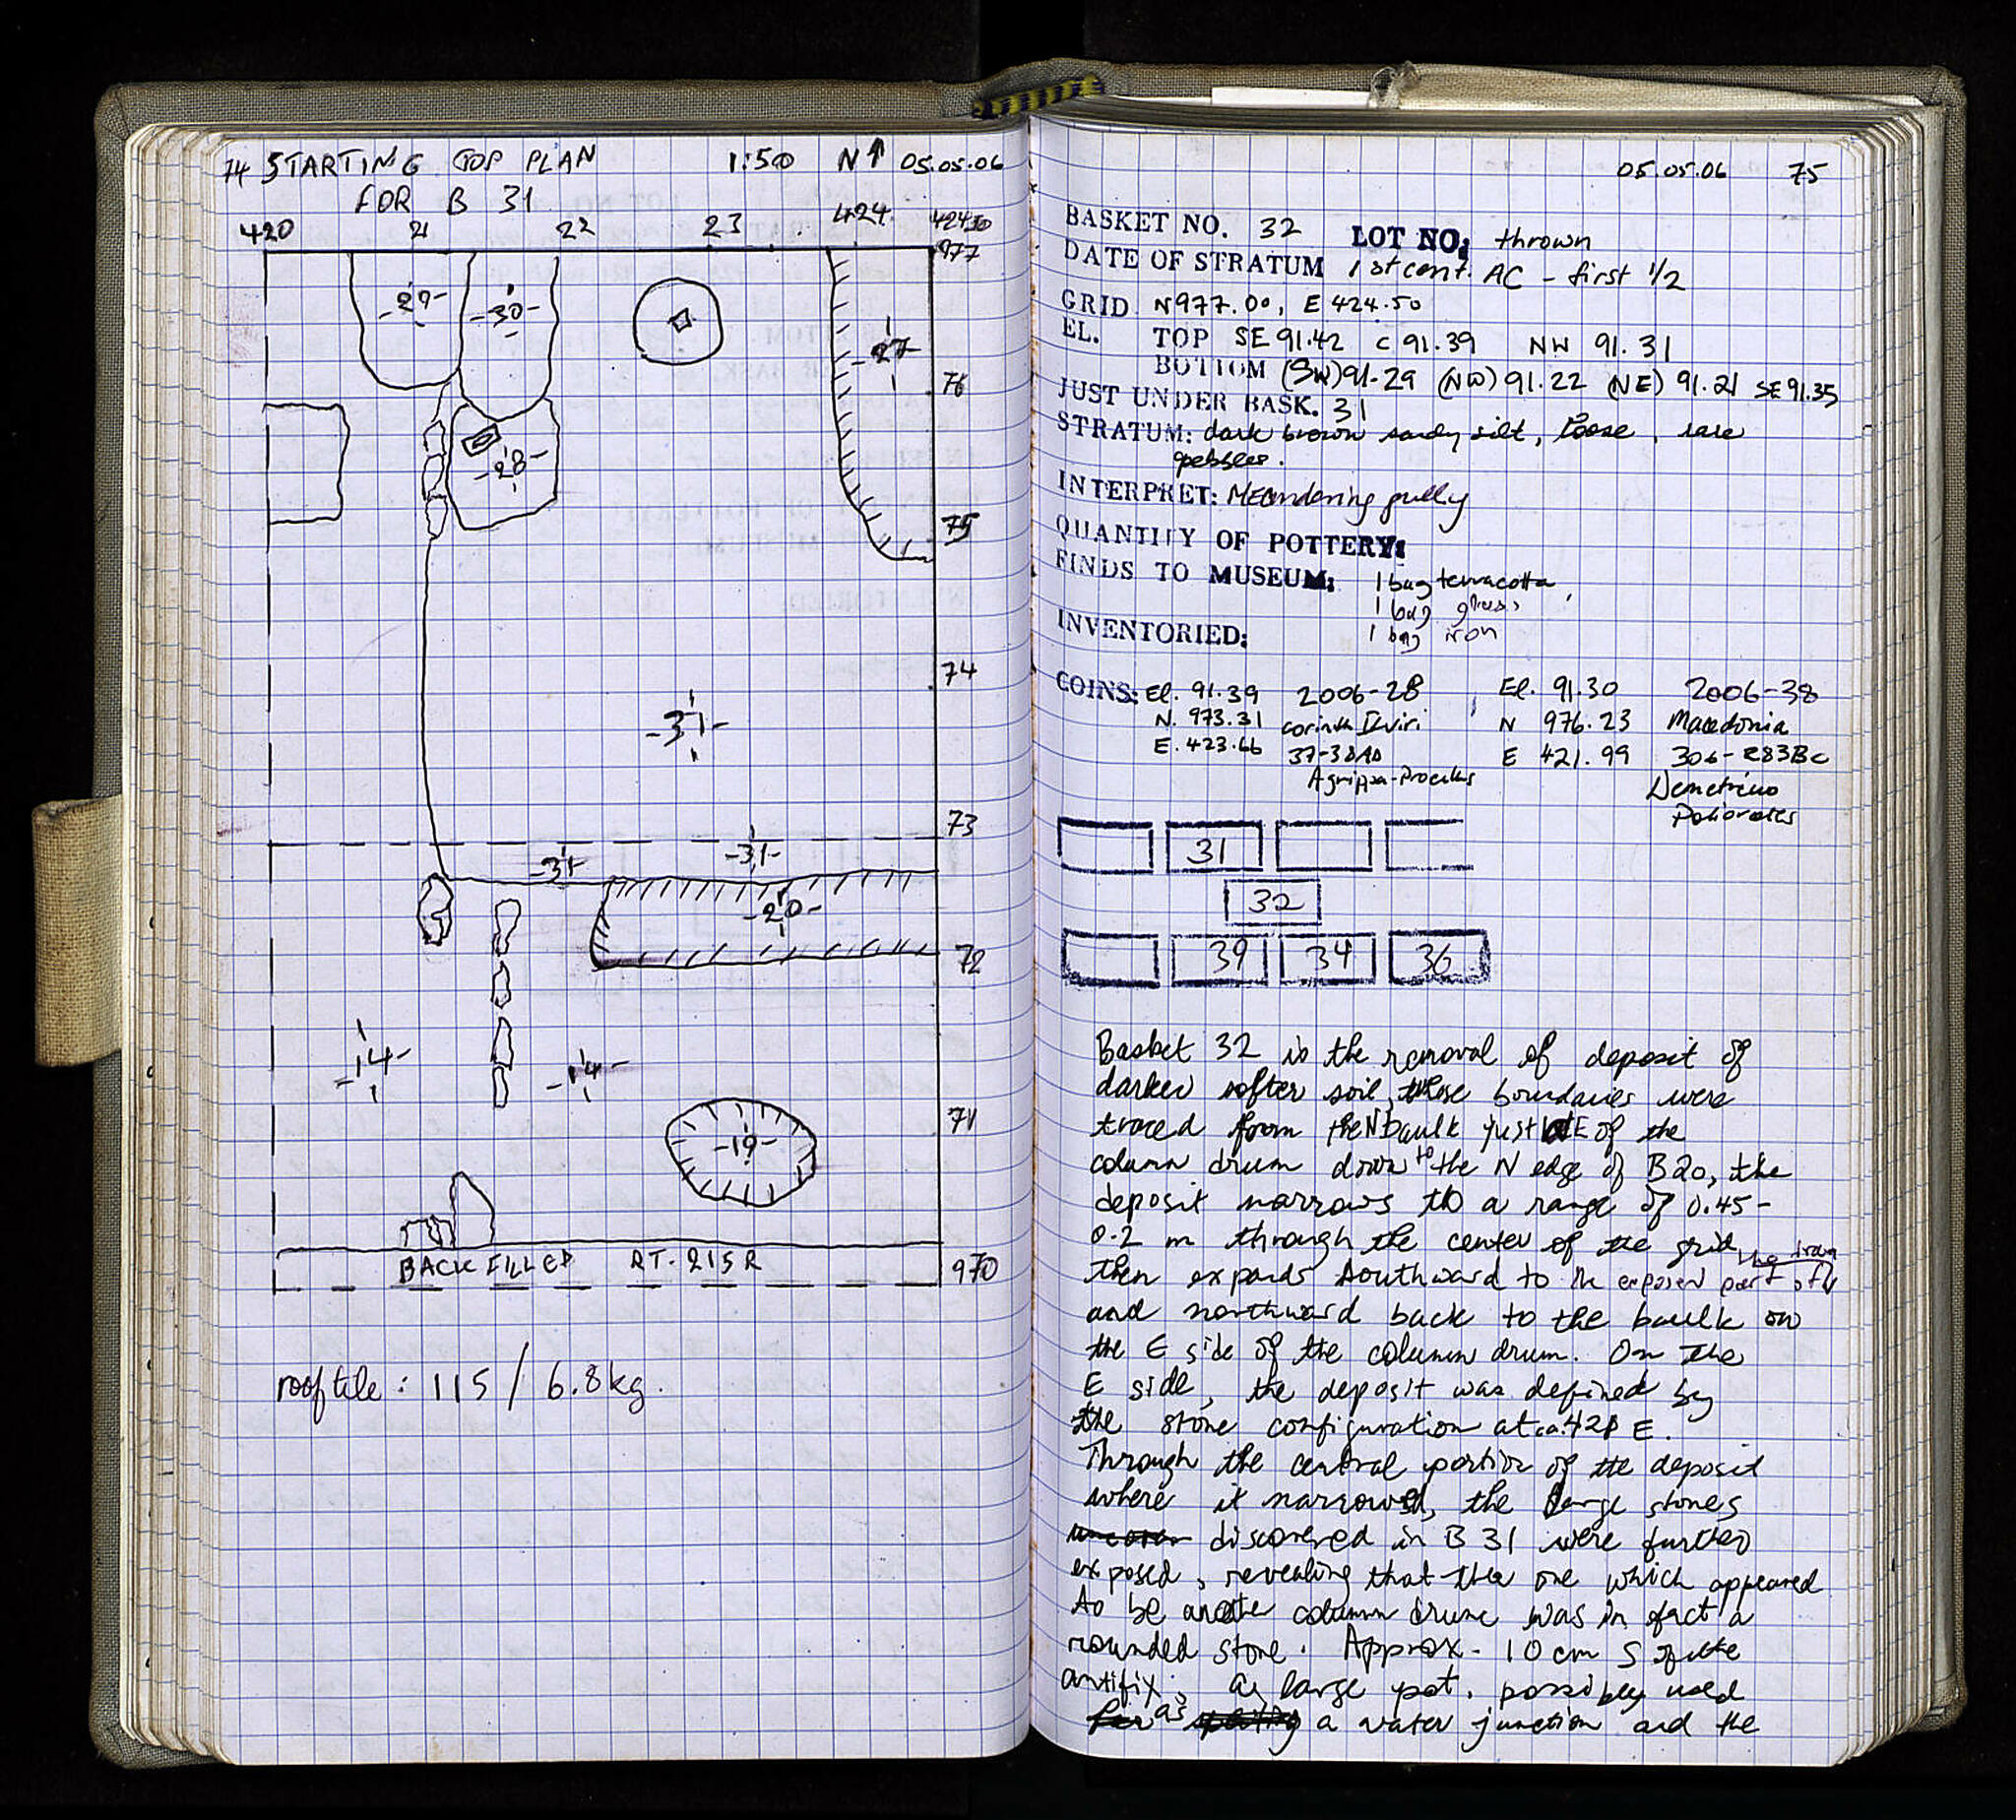 74 STARTING TOP PLAN 1:50 N↑ 05.05.06
FOR B 31
420 21 22 23 424 424.50
977
-29-
-30-
-27-
76
-28-
75
74
-31-
73
-31- -31-
-20-
72
-14- -14-
71
-19-
BACKFILLED RT. 215 R
970
rooftile: 115 / 6.8kg.
05.05.06 75
BASKET NO. 32 LOT NO: thrown
DATE OF STRATUM 1st cent. AC - first 1/2
GRID N977.00, E 424.50
EL. TOP SE 91.42 C 91.39 NW 91.31
BOTTOM (SW) 91.29 (NW) 91.22 (NE) 91.21 SE 91.35
JUST UNDER BASK. 31
STRATUM: dark brown sandy silt, loose, rare
pebbles.
INTERPRET: Meandering gully
QUANTITY OF POTTERY:
FINDS TO MUSEUM: 1 bag terracotta,
1 bag glass,
INVENTORIED: 1 bag iron
COINS: El. 91.39 2006-28 El. 91.30 2006-38
N. 973.31 Corinth IIviri N 976.23 Macedonia
E. 423.66 37-38AD E 421.99 306-283BC
Agrippa-Proculus Demetrius
Poliorcetes
31
32
39 34 36
Basket 32 is the removal of deposit of
darker softer soil, whose boundaries were
traced from the N baulk just E of the
column drum down to the N edge of B20, the
deposit narrows to a range of 0.45-
0.2 m through the center of the grid
then expands southward to the exposed part of the
and northward back to the baulk on
the E side of the column drum. On the
E side, the deposit was defined by
the stone configuration at ca. 421 E.
Through the central portion of the deposit
where it narrowed, the large stones
discovered in B 31 were further
exposed, revealing that the one which appeared
to be another column drum was in fact a
rounded stone. Approx. 10 cm S of the
antifix, a large pot, possibly used
as a water junction and the